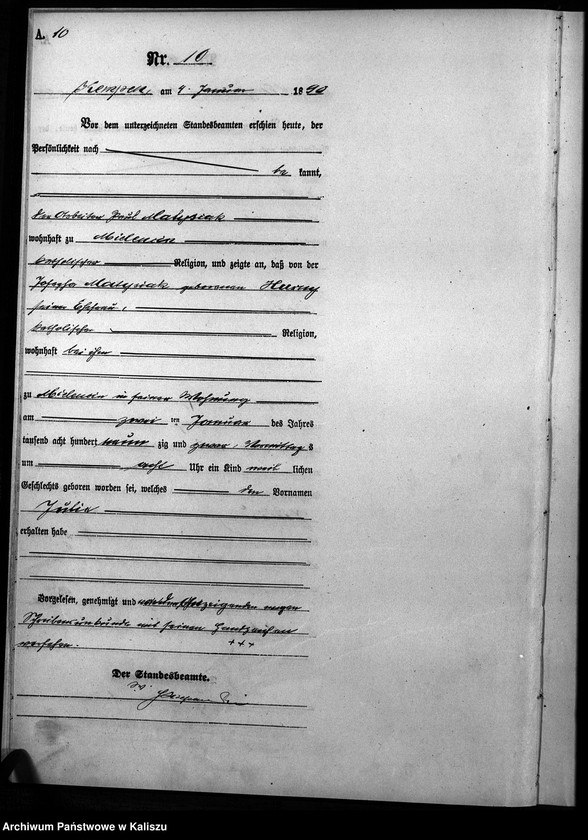 A. 10
Nr. 10
Kempen, am 4. Januar 1890
Vor dem unterzeichneten Standesbeamten erschien heute, der
Persönlichkeit nach
be kannt,
der Arbeiter Paul Matysiak
wohnhaft zu
katholischer Religion, und zeigte an, daß von der
Josepha Matysiak geborenen
seiner Ehefrau,
katholischer Religion,
wohnhaft bei ihm
zu in seiner Wohnung
am zwei ten Januar des Jahres
tausend acht hundert neun zig und zwar, Vormittag s
um acht Uhr ein Kind weib lichen
Geschlechts geboren worden sei, welches den Vornamen
Julie
erhalten habe
Vorgelesen, genehmigt und vom Anzeigenden wegen
Schreibensunkunde mit seinen Handzeichen
versehen. +++
Der Standesbeamte.
Archiwum Państwowe w Kaliszu